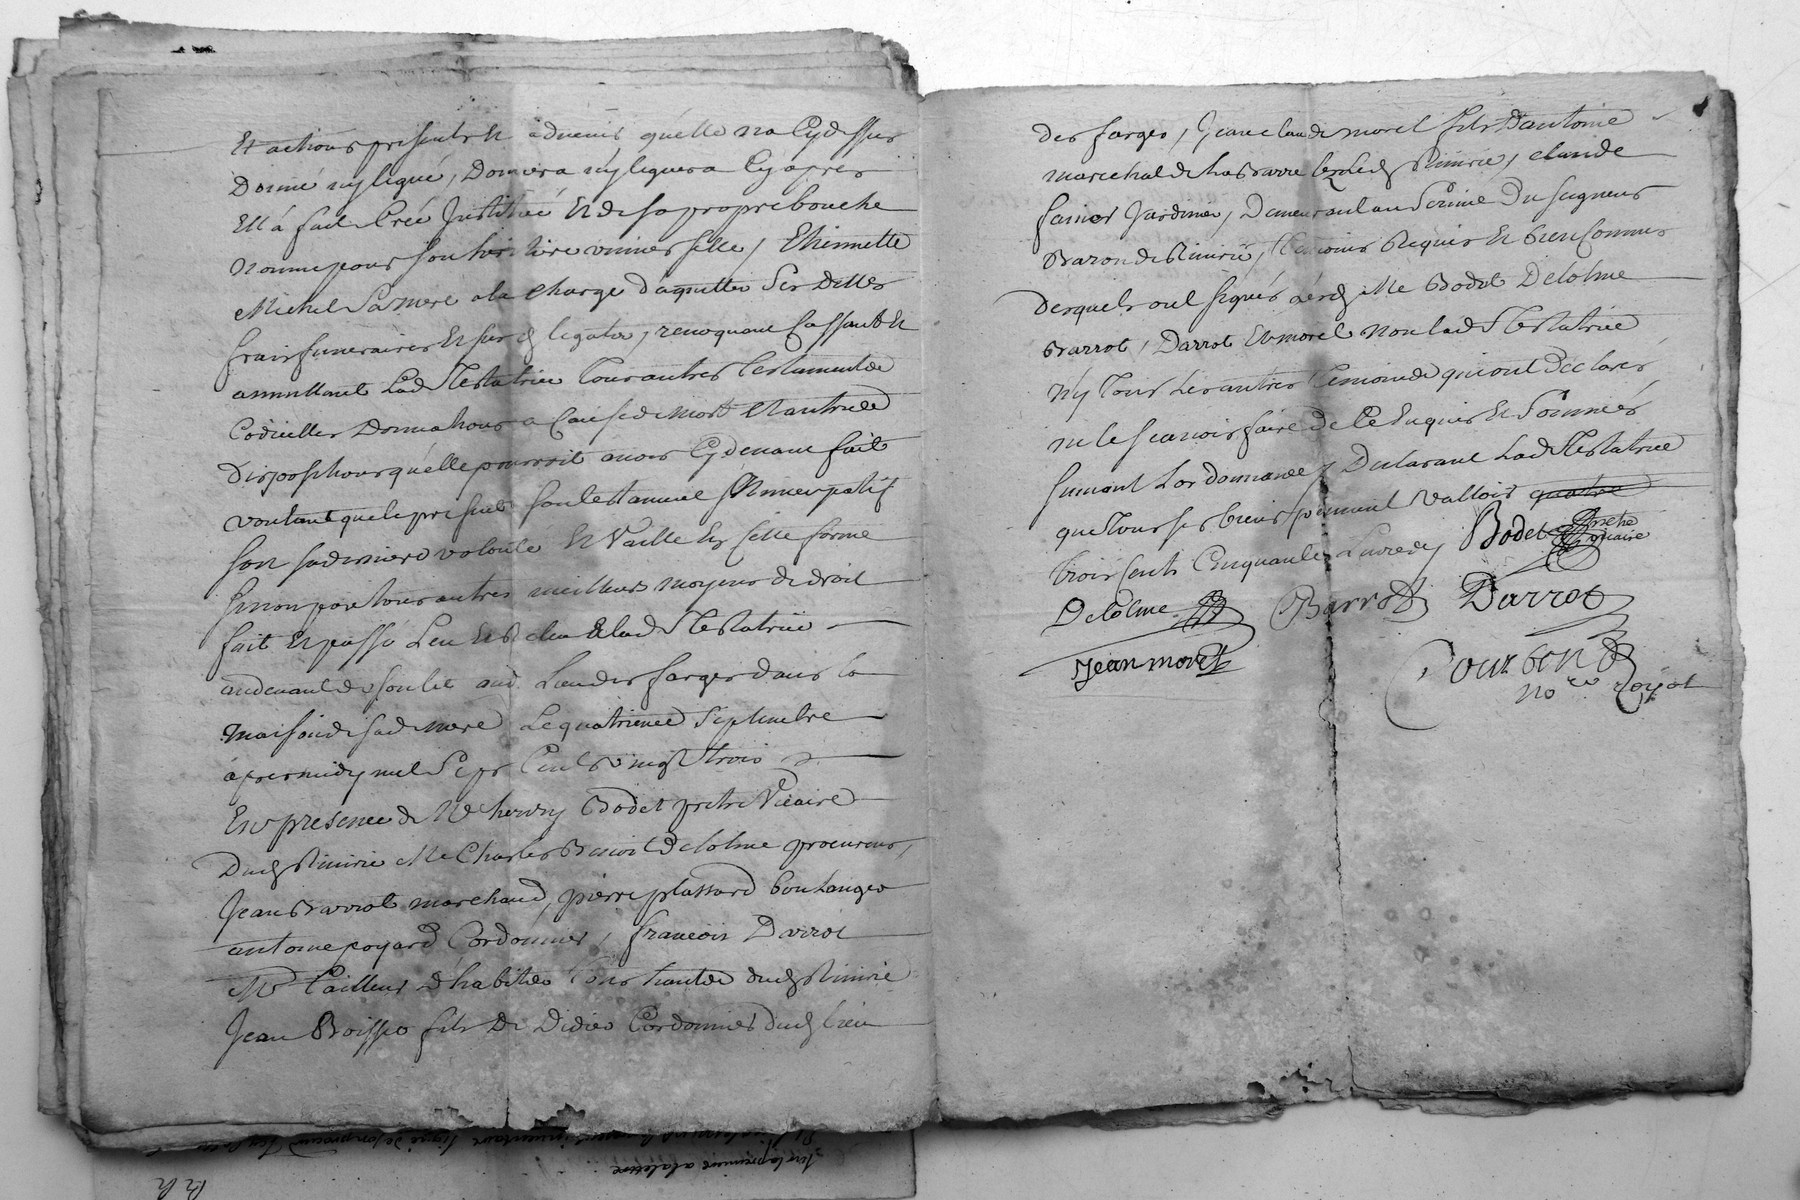 Et actions presents et advenir quelle na cydessus
Donné ny legué, Donnera ny leguera cy apres
Ell a fait Créé Institué et de sa propre bouche
Nommé pour son heritiere universelle, Ethiennette
Michel Sa mere a la charge d'aquitter Ses Dettes
frais funeraires et sus d legats, revoquant Cassant et
annullant Lad Testatrice Tous autres Testaments
Codicilles Donnations a Cause de mort et autres
Dispositions quelle pourroit avoir cydevant fait
voulant que le present son testament Nuncupatif
soit sa derniere volonté et Vaille en cette forme
sinon par tous autres meilleurs moyens de droit
fait et passé Leu et R a lad Testatrice
au devant de son lit aud Lieu des farges dans la
maison de sad mere Le quatrieme Septembre
apres midy mil Sept Cents vingt trois
En presence de Me henry Bodet pretre Vicaire
Dud Rivirie Me Charles Benoit Delolme procureur,
Jean Barrot marchand, pierre plassard boulanger
antoine poyard Cordonnier, francois Darrot
Me Tailleur d'habits Tous habitants dud Rivirie
Jean Boisso fils De Didier Cordonnier dud lieu
des farges, Jean claude morel fils D'antoine
marechal de la Barre Rivirie, claude
Jardinier, Demeurant au Service Du Seigneur
Baron de Rivirie, Temoins Requis et bien Connus
Desquels ont signés Me Bodet Delolme
Barrot, Darrot et morel non lad Testatrice
ny Tous Les autres temoins qui ont Declarés
ne le scavoir faire de ce Enquis et Sommés
suivant L'ordonnance Declarant Lad Testatrice
que Tous ses biens peuvent Valloir quatre
trois Cents Cinquante Livres Bodet prêtre
vicaire
Delolme Barrot Darrot
Jean morel
Courbon
No.re royal